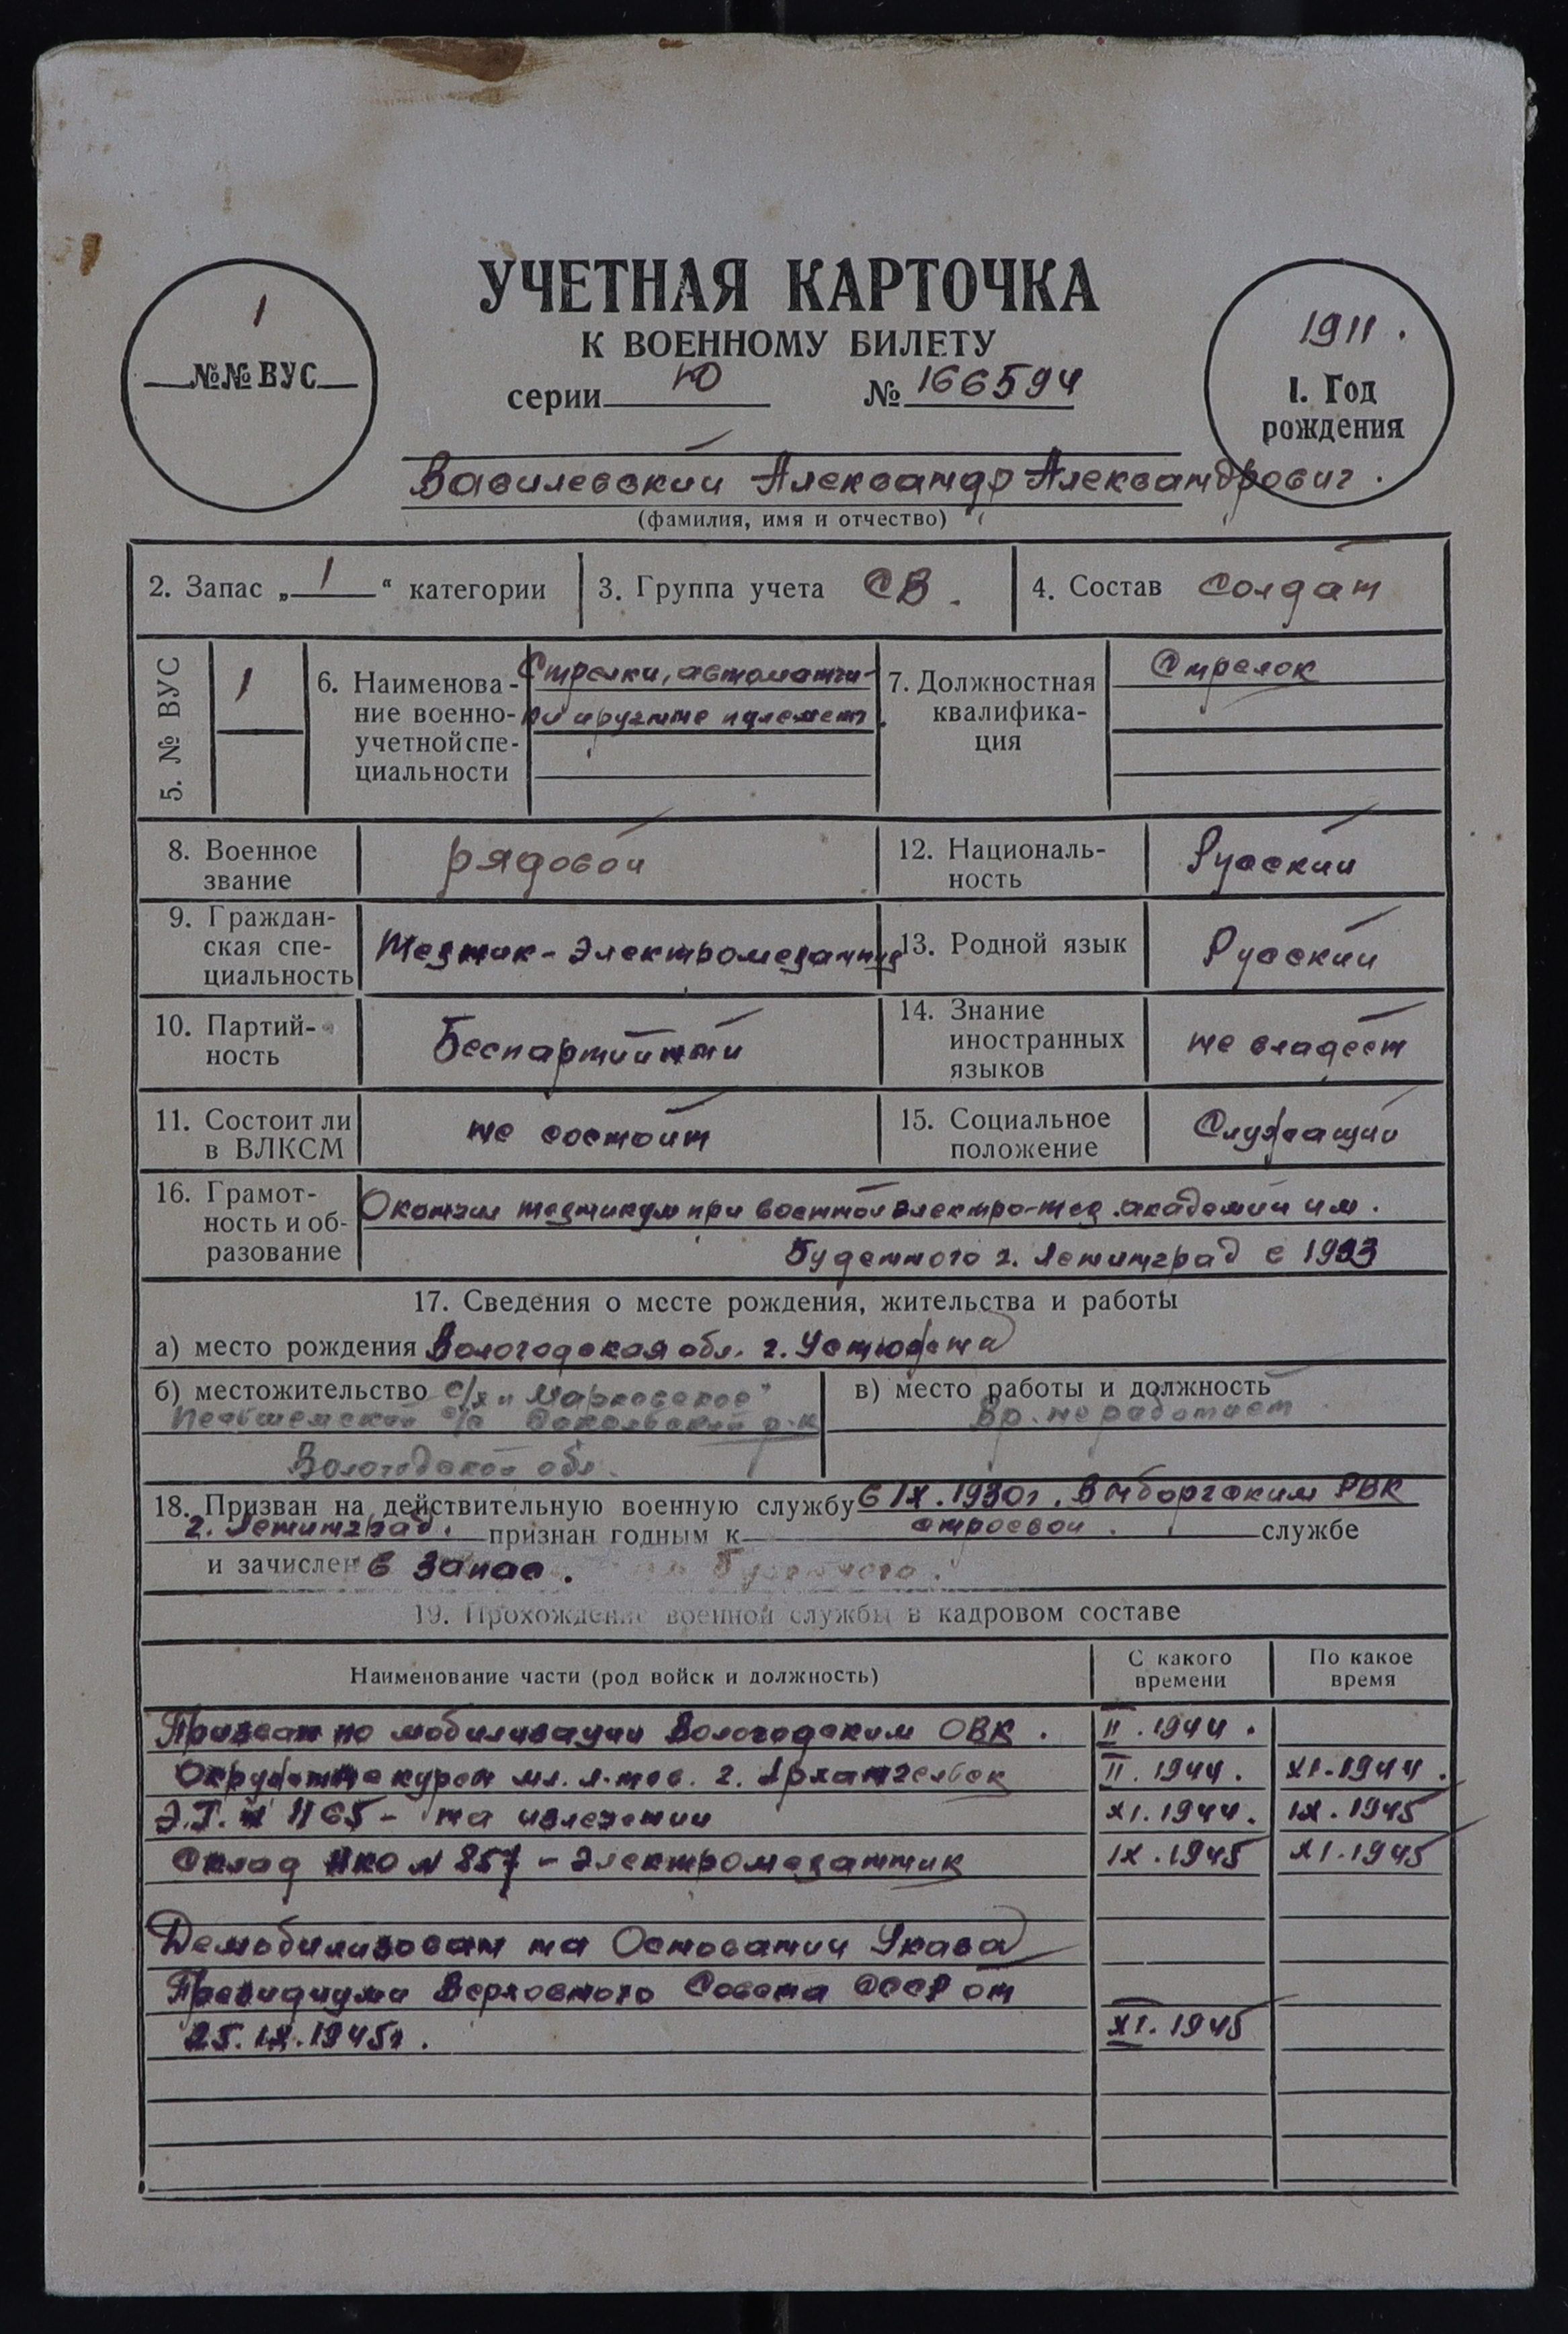 УЧЕТНАЯ КАРТОЧКА
К ВОЕННОМУ БИЛЕТУ
серии Ю № 166594
1
№№ ВУС
1911.
1. Год
рождения
Василевский Александр Александрович.
(фамилия, имя и отчество)
2. Запас „1“ категории 3. Группа учета СВ. 4. Состав солдат
5. № ВУС 1
6. Наименова-
ние военно-
учетной спе-
циальности
Стрелки, автоматчи-
ки и ручные пулемет.
7. Должностная
квалифика-
ция
Стрелок
8. Военное
звание
рядовой
12. Националь-
ность
Русский
9. Граждан-
ская спе-
циальность
Техник-электромеханик
13. Родной язык Русский
10. Партий-
ность
Беспартийный
14. Знание
иностранных
языков
не владеет
11. Состоит ли
в ВЛКСМ
не состоит
15. Социальное
положение
Служащий
16. Грамот-
ность и об-
разование
Окончил техникум при военной электро-тех. академии им.
Буденного г. Ленинград в 1933
17. Сведения о месте рождения, жительства и работы
а) место рождения Вологодская обл. г. Устюжена
б) местожительство с/х „Марковское“
с/с Сокольский р-н
Вологодской обл.
в) место работы и должность
Вр. не работает
18. Призван на действительную военную службу 6 IX. 1930г. Выборгским РВК
г. Ленинград. признан годным к строевой службе
и зачислен в запас.
19. Прохождение военной службы в кадровом составе
Наименование части (род войск и должность) С какого времени По какое время
Призван по мобилизации Вологодским ОВК. II. 1944.
Окружные курсы мл. л-тов. г. Архангельск II. 1944. XI-1944.
Э.Г. № 1165 - на излечении XI. 1944. IX. 1945
Склад НКО № 857 - электромеханик IX. 1945 XI. 1945
Демобилизован на Основании Указа
Президиума Верховного Совета СССР от
25. IX. 1945г. XI. 1945